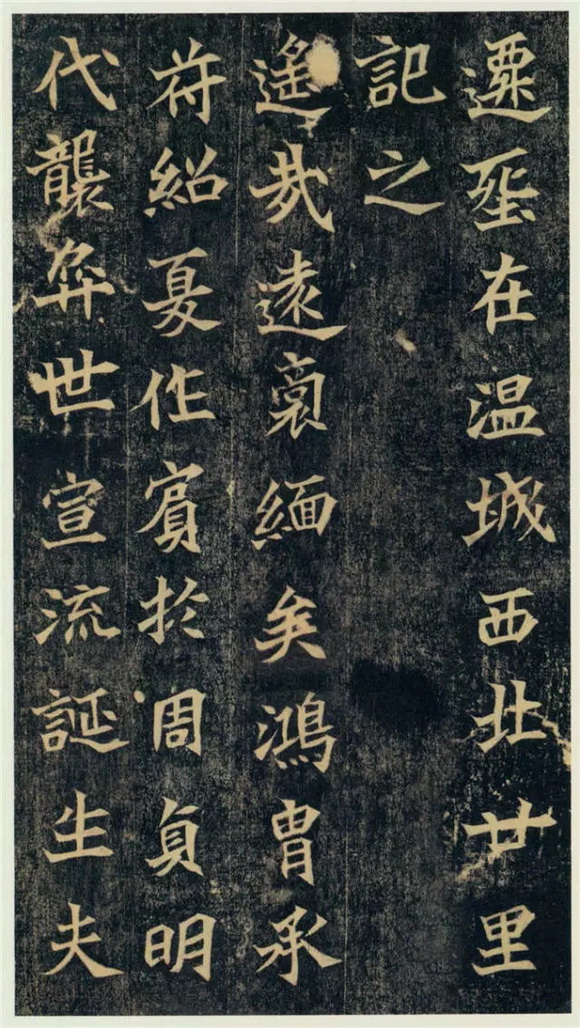 遷塟在温城西北廿里
記之
遙哉遠裔緬矣鴻胄承
苻紹夏作賓於周貞明
代襲弈世宣流誕生夫